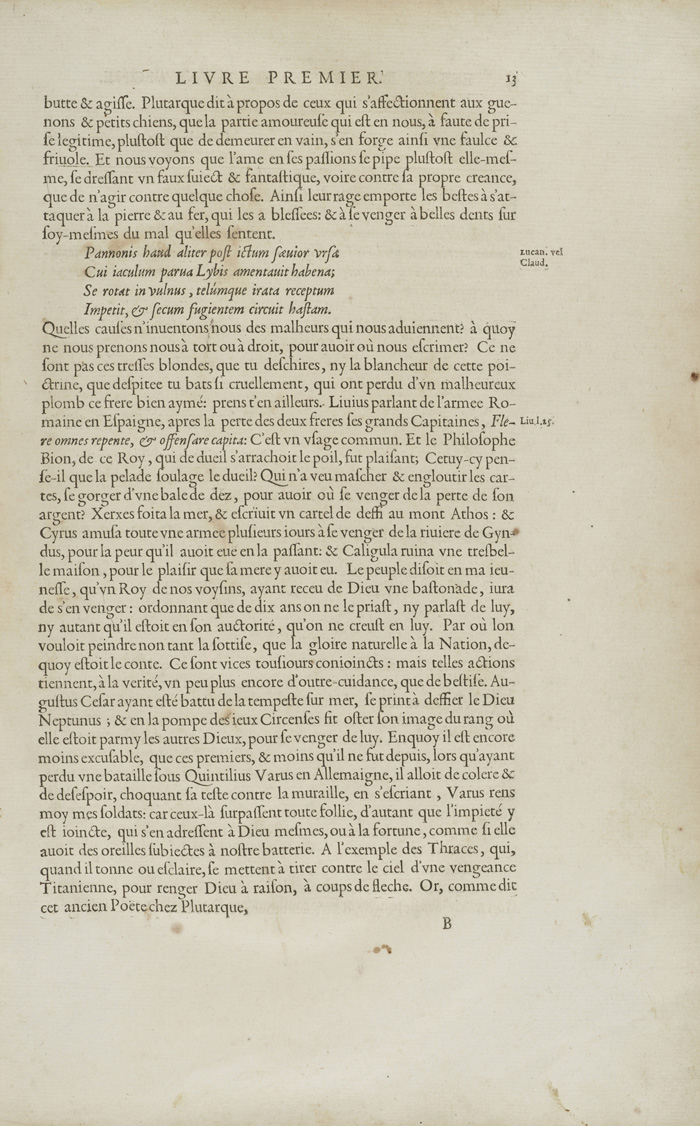 LIVRE PREMIER. 13
butte & agiſſe. Plutarque dit à propos de ceux qui s'affectionnent aux gue-
nons & petits chiens, que la partie amoureuſe qui eſt en nous, à faute de pri-
ſe legitime, pluſtoſt que de demeurer en vain, s'en forge ainſi vne faulce &
friuole. Et nous voyons que l'ame en ſes paſſions ſe pipe pluſtoſt elle-meſ-
me, ſe dreſſant vn faux ſuiect & fantaſtique, voire contre ſa propre creance,
que de n'agir contre quelque choſe. Ainſi leur rage emporte les beſtes à s'at-
taquer à la pierre & au fer, qui les a bleſſees: & à ſe venger à belles dents ſur
ſoy-meſmes du mal qu'elles ſentent.
Pannonis haud aliter poſt ictum ſæuior vrſa
Lucan. vel
Claud.
Cui iaculum parua Lybis amentauit habena;
Se rotat in vulnus, telúmque irata receptum
Impetit, & ſecum fugientem circuit haſtam.
Quelles cauſes n'inuentons nous des malheurs qui nous aduiennent? à quoy
ne nous prenons nous à tort ou à droit, pour auoir où nous eſcrimer? Ce ne
ſont pas ces treſſes blondes, que tu deſchires, ny la blancheur de cette poi-
ctrine, que deſpitee tu bats ſi cruellement, qui ont perdu d'vn malheureux
plomb ce frere bien aymé: prens t'en ailleurs. Liuius parlant de l'armee Ro-
maine en Eſpaigne, apres la perte des deux freres ſes grands Capitaines, Fle-
Liu.l.25.
re omnes repente, & offenſare capita: C'eſt vn vſage commun. Et le Philoſophe
Bion, de ce Roy, qui de dueil s'arrachoit le poil, fut plaiſant; Cetuy-cy pen-
ſe-il que la pelade ſoulage le dueil? Qui n'a veu maſcher & engloutir les car-
tes, ſe gorger d'vne bale de dez, pour auoir où ſe venger de la perte de ſon
argent? Xerxes foita la mer, & eſcriuit vn cartel de deffi au mont Athos: &
Cyrus amuſa toute vne armee pluſieurs iours à ſe venger de la riuiere de Gyn-
dus, pour la peur qu'il auoit eue en la paſſant: & Caligula ruina vne treſbel-
le maiſon, pour le plaiſir que ſa mere y auoit eu. Le peuple diſoit en ma ieu-
neſſe, qu'vn Roy de nos voyſins, ayant receu de Dieu vne baſtonade, iura
de s'en venger: ordonnant que de dix ans on ne le priaſt, ny parlaſt de luy,
ny autant qu'il eſtoit en ſon auctorité, qu'on ne creuſt en luy. Par où lon
vouloit peindre non tant la ſottiſe, que la gloire naturelle à la Nation, de-
quoy eſtoit le conte. Ce ſont vices touſiours conioincts: mais telles actions
tiennent, à la verité, vn peu plus encore d'outre-cuidance, que de beſtiſe. Au-
guſtus Ceſar ayant eſté battu de la tempeſte ſur mer, ſe print à deffier le Dieu
Neptunus; & en la pompe des ieux Circenſes fit oſter ſon image du rang où
elle eſtoit parmy les autres Dieux, pour ſe venger de luy. Enquoy il eſt encore
moins excuſable, que ces premiers, & moins qu'il ne fut depuis, lors qu'ayant
perdu vne bataille ſous Quintilius Varus en Allemaigne, il alloit de colere &
de deſeſpoir, choquant ſa teſte contre la muraille, en s'eſcriant, Varus rens
moy mes ſoldats: car ceux-là ſurpaſſent toute follie, d'autant que l'impieté y
eſt ioincte, qui s'en adreſſent à Dieu meſmes, ou à la fortune, comme ſi elle
auoit des oreilles ſubiectes à noſtre batterie. A l'exemple des Thraces, qui,
quand il tonne ou eſclaire, ſe mettent à tirer contre le ciel d'vne vengeance
Titanienne, pour renger Dieu à raiſon, à coups de fleche. Or, comme dit
cet ancien Poëte chez Plutarque,
B